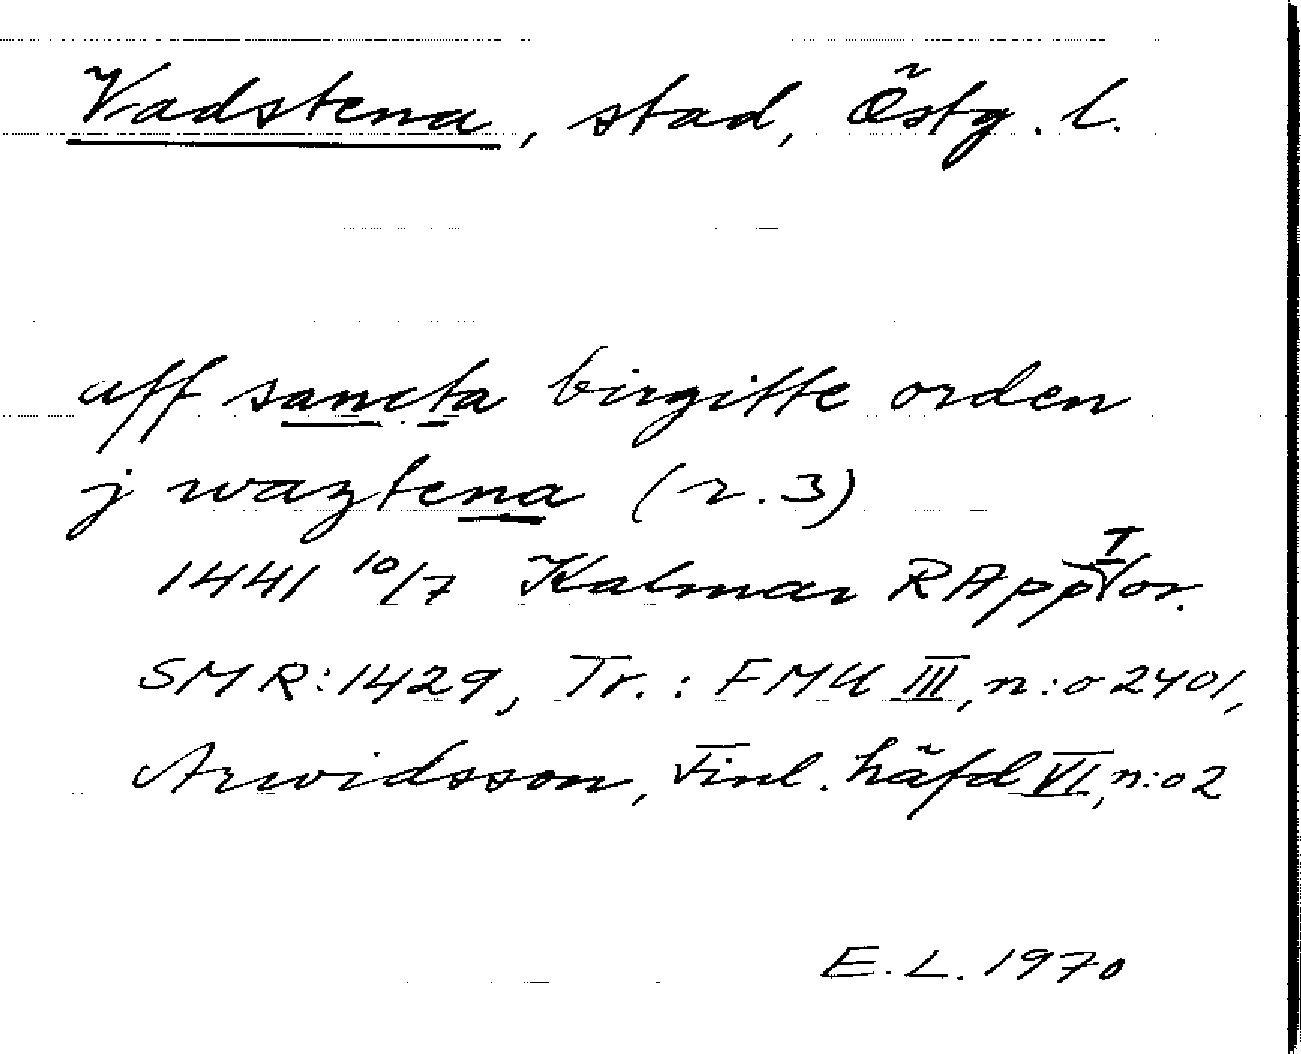 Vadstena, stad, Östg. l.
uff sancta birgitte orden
j waztena (r. 3)
1441 10/7 Kalmar RApp I or.
SMR: 1429, Tr.: FMU III, n:o 2401,
Arwidsson, Finl. häfd VI, n:o 2
E. L. 1970